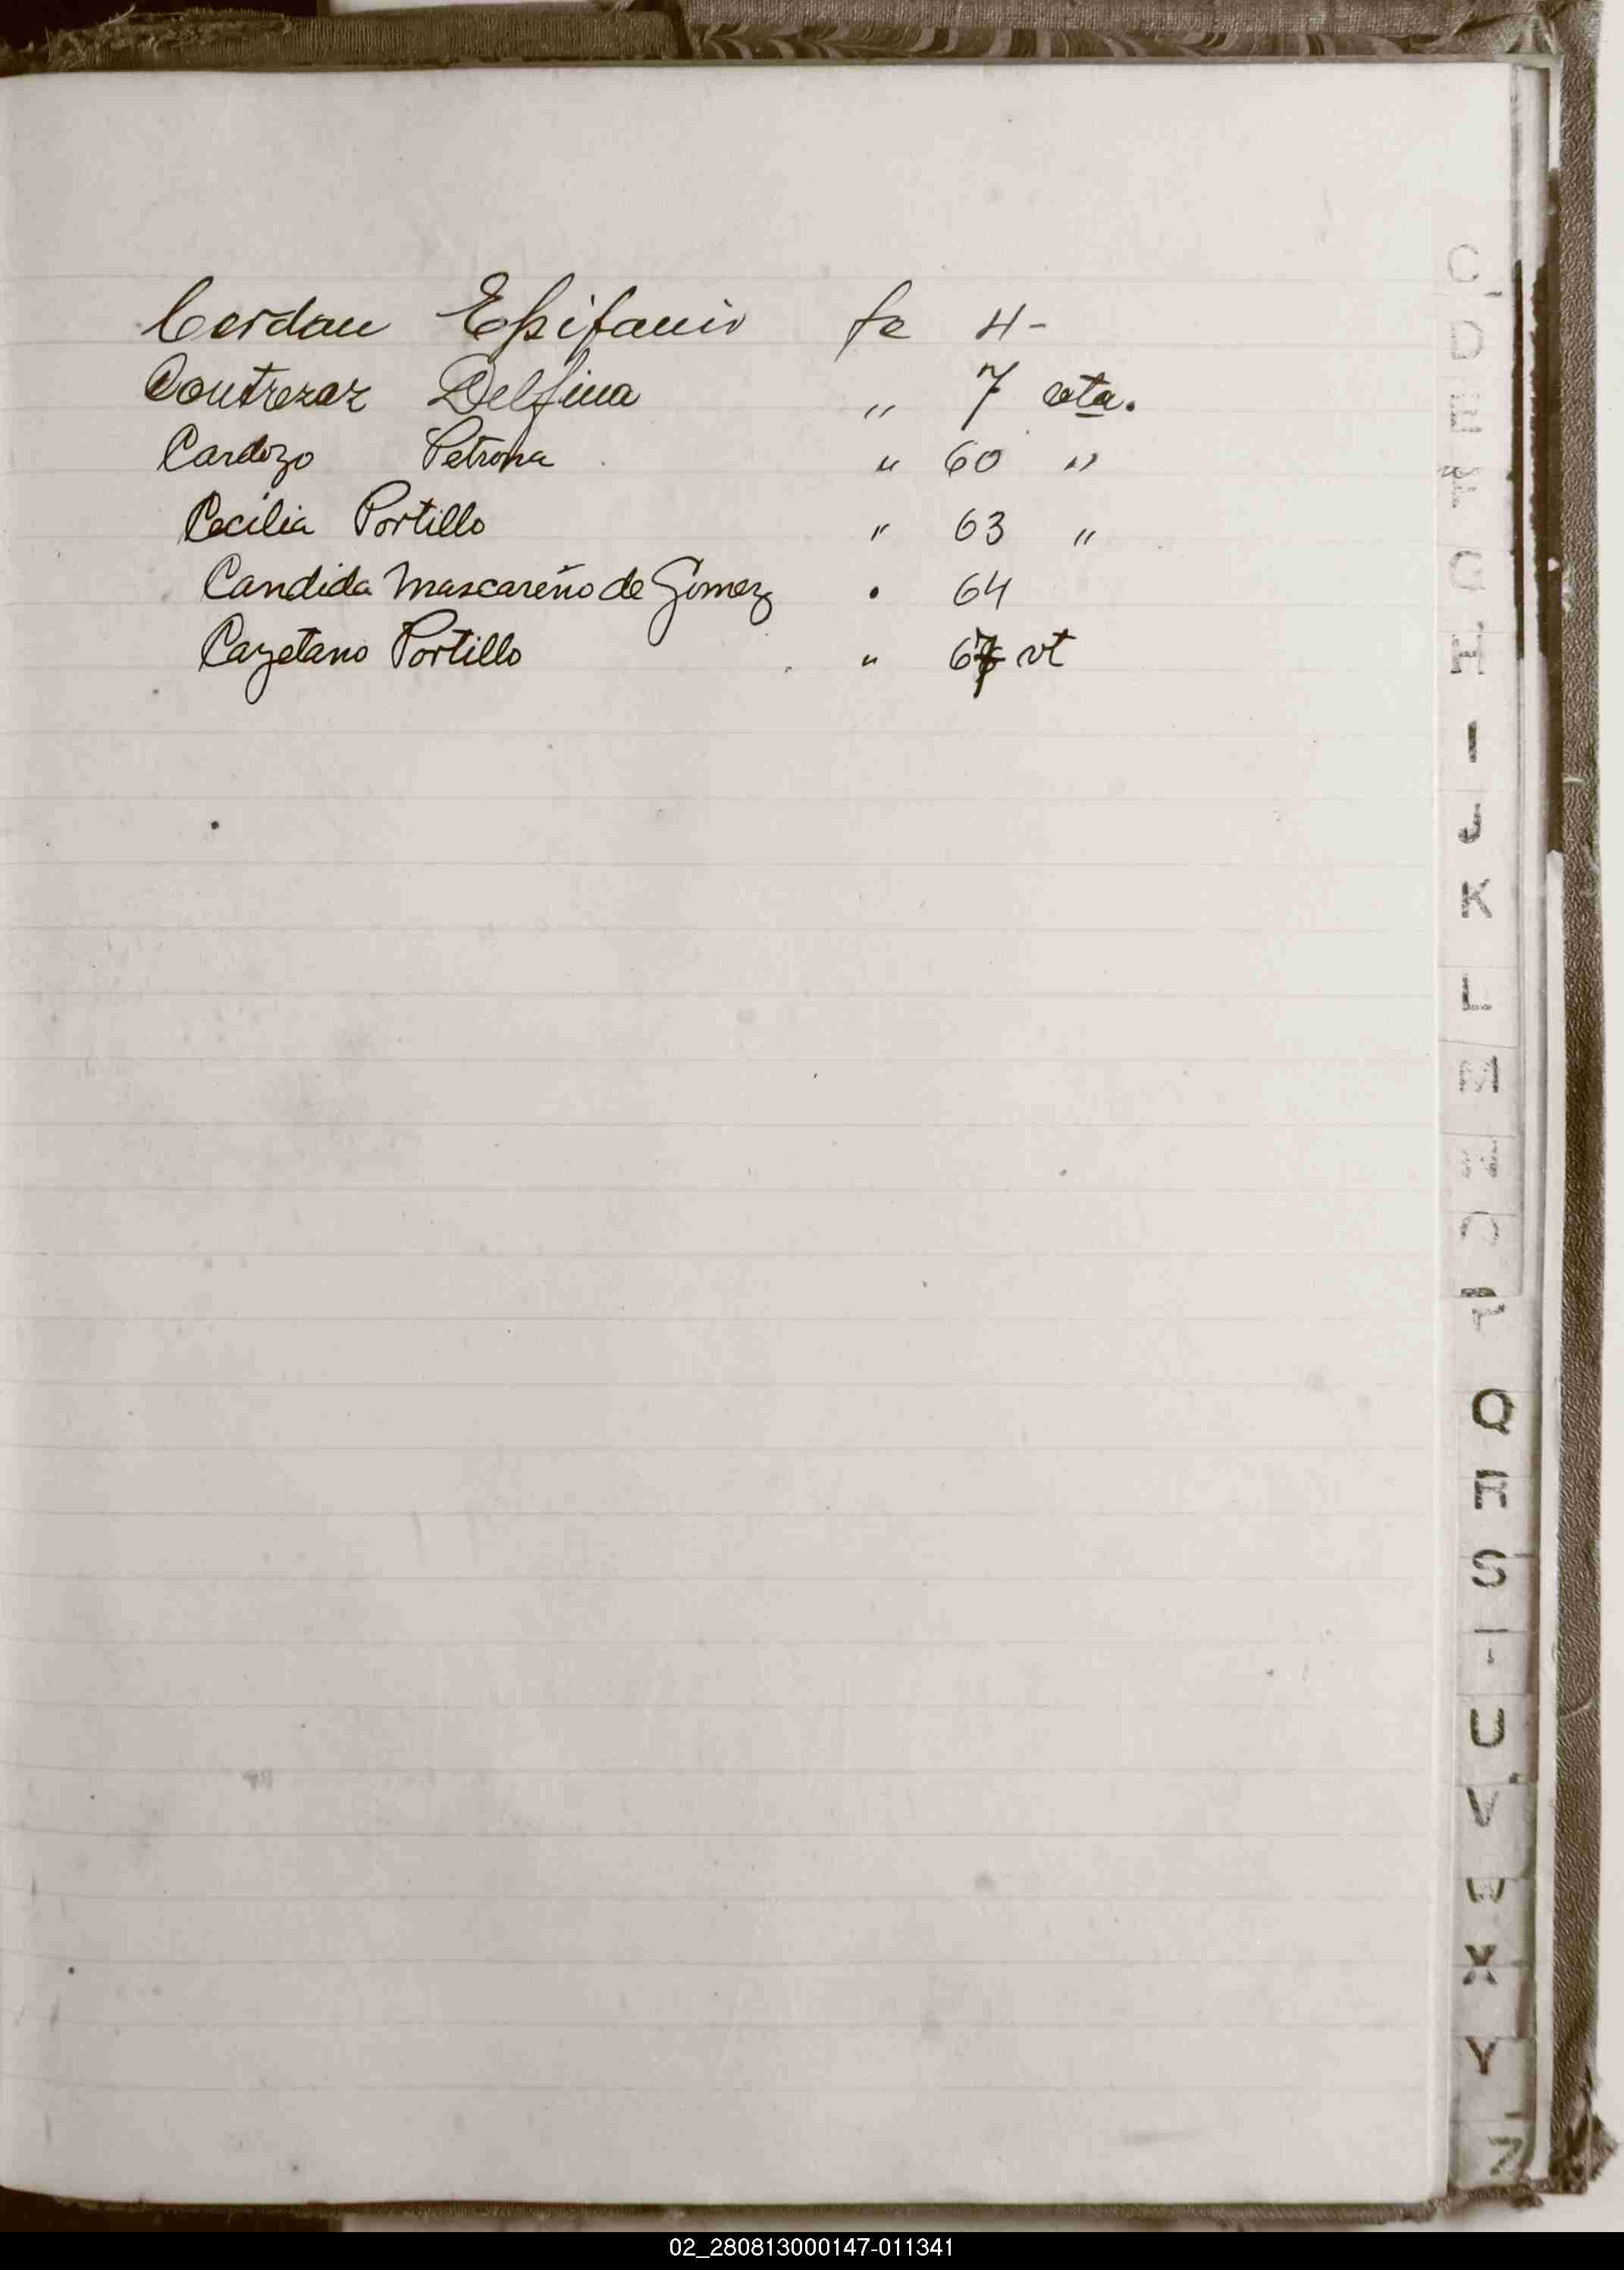 Cerdan Epifanio fe 4-
Contreraz Delfina " 7 vta.
Cardozo Petrona " 60 "
Cecilia Portillo " 63 "
Candida Mascareño de Gomez . 64
Cayetano Portillo " 67 vt
C
D
E
F
G
H
I
J
K
L
M
N
O
P
Q
R
S
T
U
V
W
X
Y
Z
02_280813000147-011341